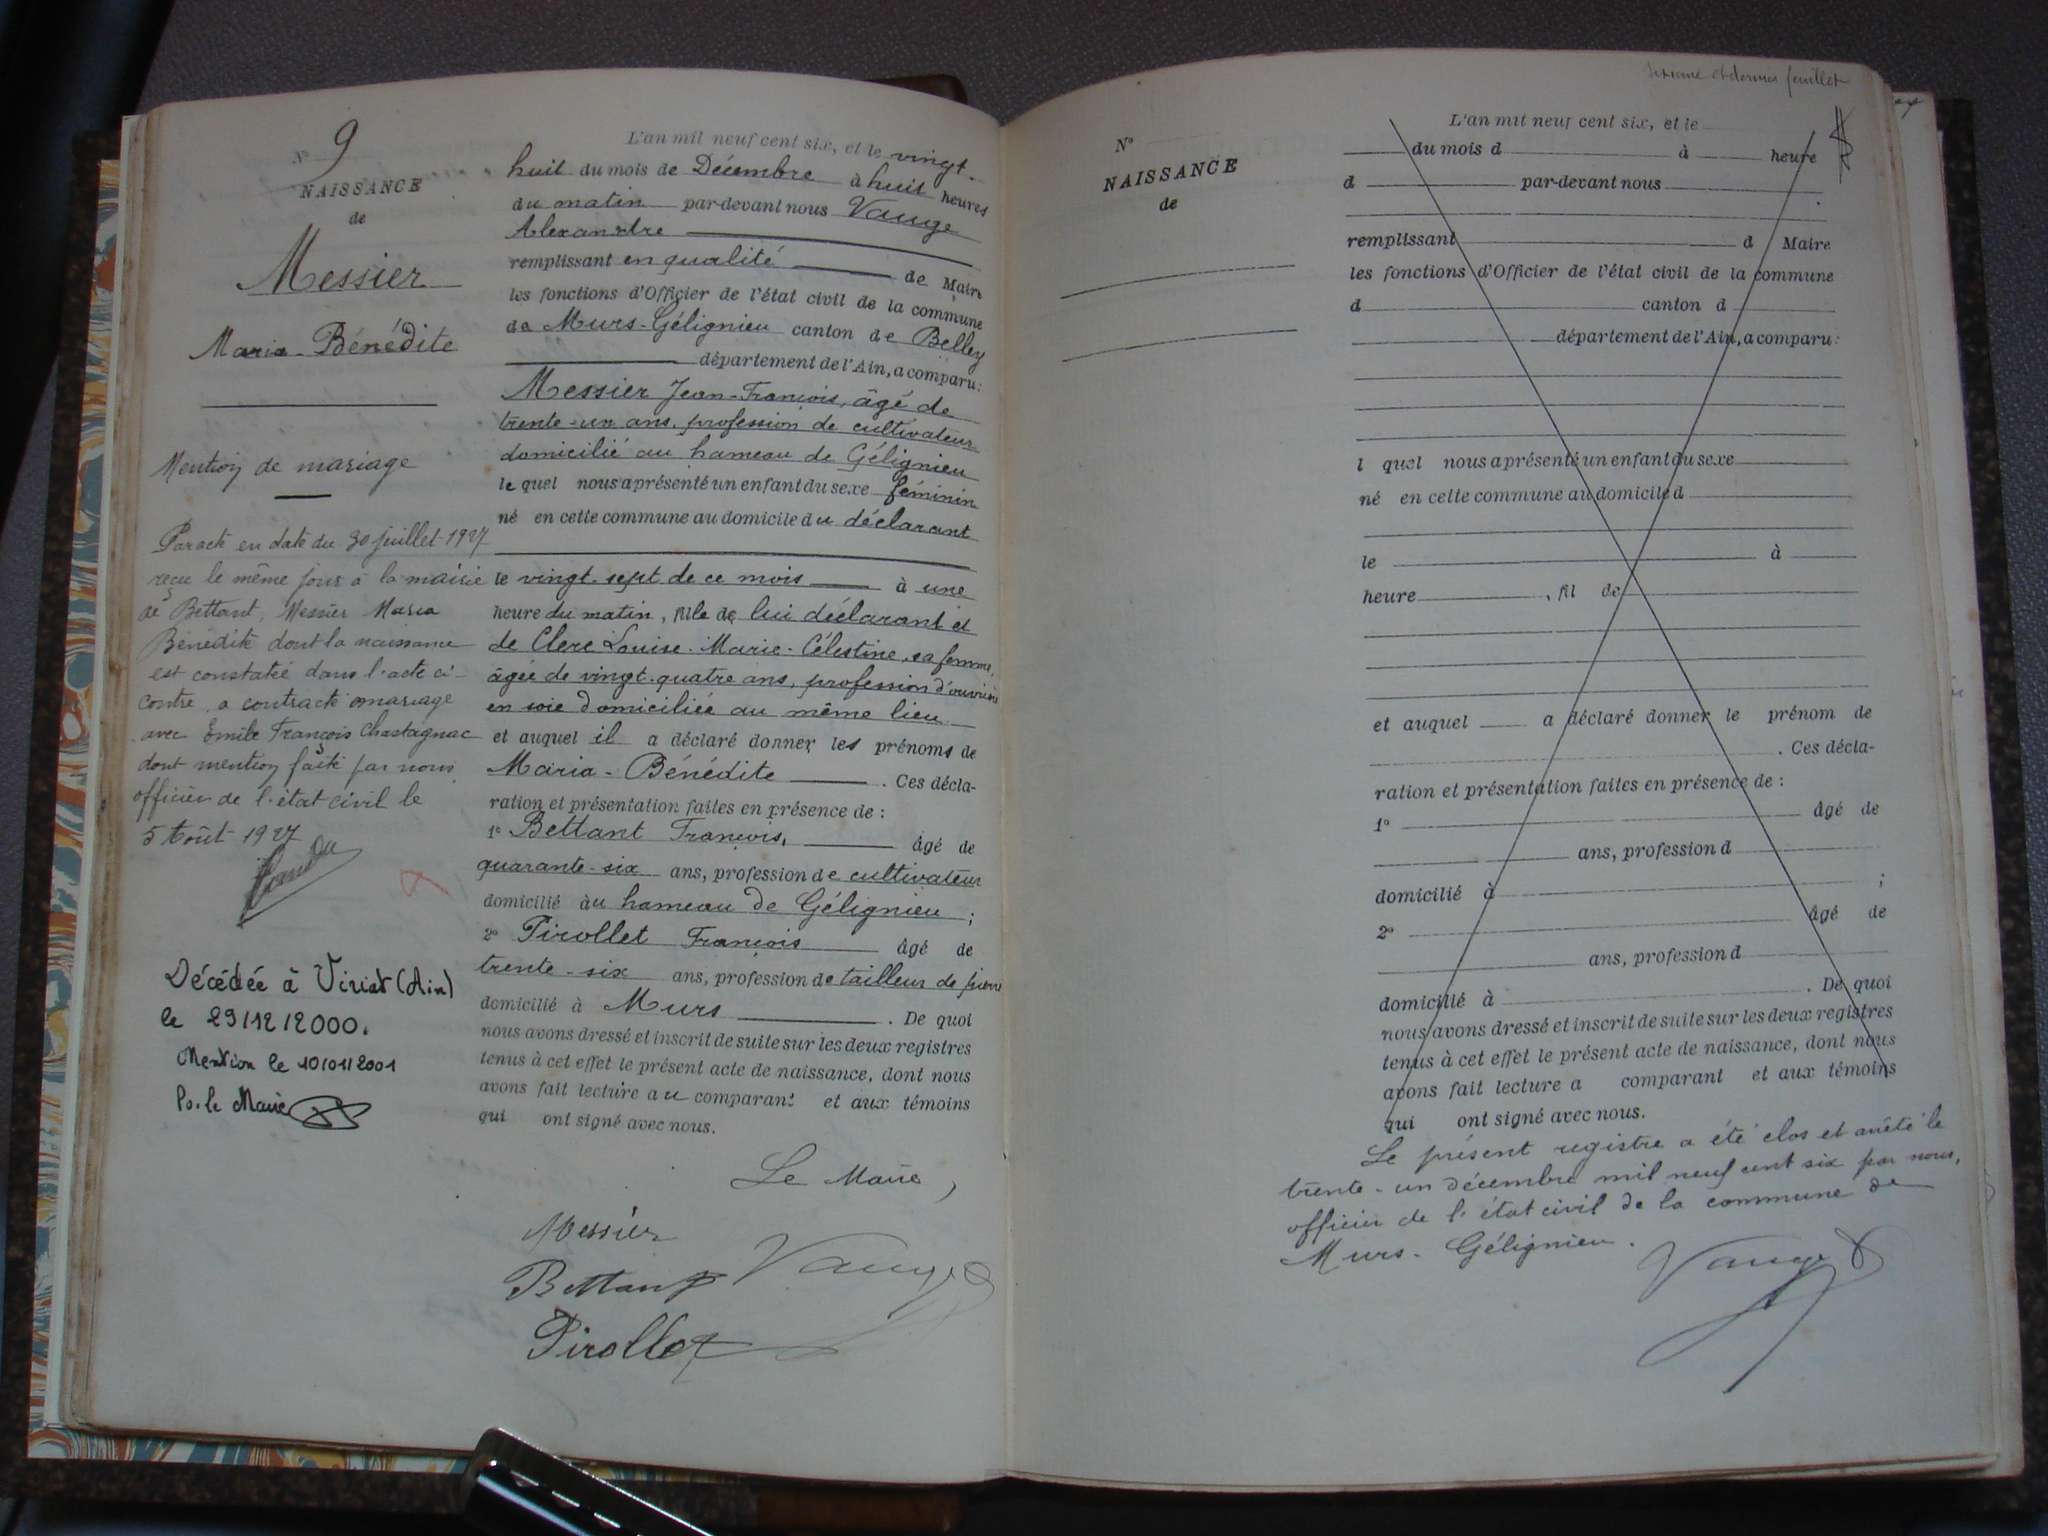 Nº 9
NAISSANCE
de
Messier
Maria-Bénédite
Mention de mariage
Par acte en date du 30 Juillet 1927
reçu le même jour à la mairie
de Bettant, Messier Maria
Bénédite dont la naissance
est constatée dans l'acte ci-
contre, a contracté mariage
avec Emile François Chastagnac
dont mention faite par nous
officier de l'état civil le
5 Août 1927
Décédée à Viriat (Ain)
le 29/12/2000.
Mention le 10/01/2001
Po. le Maire
L'an mil neuf cent six, et le vingt-
huit du mois de Décembre à huit heures
du matin par-devant nous Vauge
Alexandre
remplissant en qualité de Maire
les fonctions d'Officier de l'état civil de la commune
de Murs-Gélignieu canton de Belley
département de l'Ain, a comparu:
Messier Jean-François, âgé de
trente-un ans, profession de cultivateur
domicilié au hameau de Gélignieu
lequel nous a présenté un enfant du sexe féminin
né en cette commune au domicile du déclarant
le vingt-sept de ce mois à une
heure du matin, fille de lui déclarant et
de Clerc Louise-Marie-Célestine, sa femme,
âgée de vingt-quatre ans, profession d'ouvrière
en soie domiciliée au même lieu
et auquel il a déclaré donner les prénoms de
Maria-Bénédite. Ces décla-
ration et présentation faites en présence de :
1º Bettant François, âgé de
quarante-six ans, profession de cultivateur
domicilié au hameau de Gélignieu ;
2º Pirollet François âgé de
trente-six ans, profession de tailleur de pierre
domicilié à Murs. De quoi
nous avons dressé et inscrit de suite sur les deux registres
tenus à cet effet le présent acte de naissance, dont nous
avons fait lecture au comparant et aux témoins
qui ont signé avec nous.
Le Maire,
Messier
Bettant Vauge
Pirollet
sixième et dernier feuillet
Nº
NAISSANCE
de
L'an mil neuf cent six, et le
du mois d à heure
d par-devant nous
remplissant d Maire
les fonctions d'Officier de l'état civil de la commune
d canton d
département de l'Ain, a comparu:
l quel nous a présenté un enfant du sexe
né en cette commune au domicile d
le à
heure , fil de
et auquel a déclaré donner le prénom de
. Ces décla-
ration et présentation faites en présence de :
1º âgé de
ans, profession d
domicilié à ;
2º âgé de
ans, profession d
domicilié à . De quoi
nous avons dressé et inscrit de suite sur les deux registres
tenus à cet effet le présent acte de naissance, dont nous
avons fait lecture a comparant et aux témoins
qui ont signé avec nous.
Le présent registre a été clos et arrêté le
trente-un décembre mil neuf cent six par nous,
officier de l'état civil de la commune de
Murs-Gélignieu.
Vauge